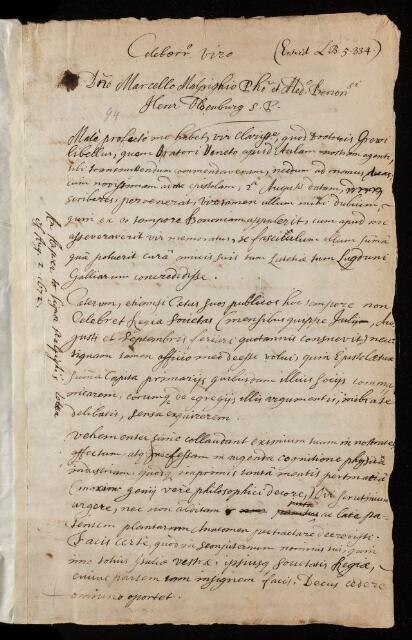 Celeberr. viro
(Enterd LB. 5. 334.)
Dno Marcello Malpighio Pho. et Medo. Bononsi
Henr. Oldenburg S. P.
94
Male profecto me habet, vir Clarisse, quod Doctoris Grewi
libellus, quem Oratori Veneto apud Aulam nostram agenti,
tibi transmittendum commendaveram, nedum ad manus tuas,
cum novissimam ad me epistolam, Augusti datam,
scriberes, pervenerat; vix tamen ullum mihi dubium,
quin ex eo tempore Bononiam appulerit, cum apud me
asseveraverit vir memoratus, se fasciculum illum summâ
quâ potuerit curâ amicis suis tum Lutetiae tum Lugduni
Galliarum concredidisse.
Caeterum, etiamsi Cœtus suos publicos hoc tempore non
Celebret Regia Societas (mensibus quippe Julij, Au-
gusti et Septembris feriari quotannis consuevit,) neu-
tiquam tamen officio meo deesse volui, quin Epistolae tuae
summa Capita primarijs quibusdam illius Socijs commu-
nicarem, eorumque de egregijs illis argumentis, inibi a te
delibatis, sensa exquirerem.
Vehementer sane collaudant eximium tuum in nostrates
affectum, atque indefessam in augenda cognitione physica
industriam.
genij vere philosophici decore,) scrutinium
urgere, nec non abditam ac late pa-
tentem plantarum Anatomen pertractare decrevisti.
Facis certe, quod in sempiternum nominis tui, quin
imo totius Italiae vestrae, ipsiusque Societatis Regiae,
cuius partem tam insignem facis, Decus cedere
omnino oportet.